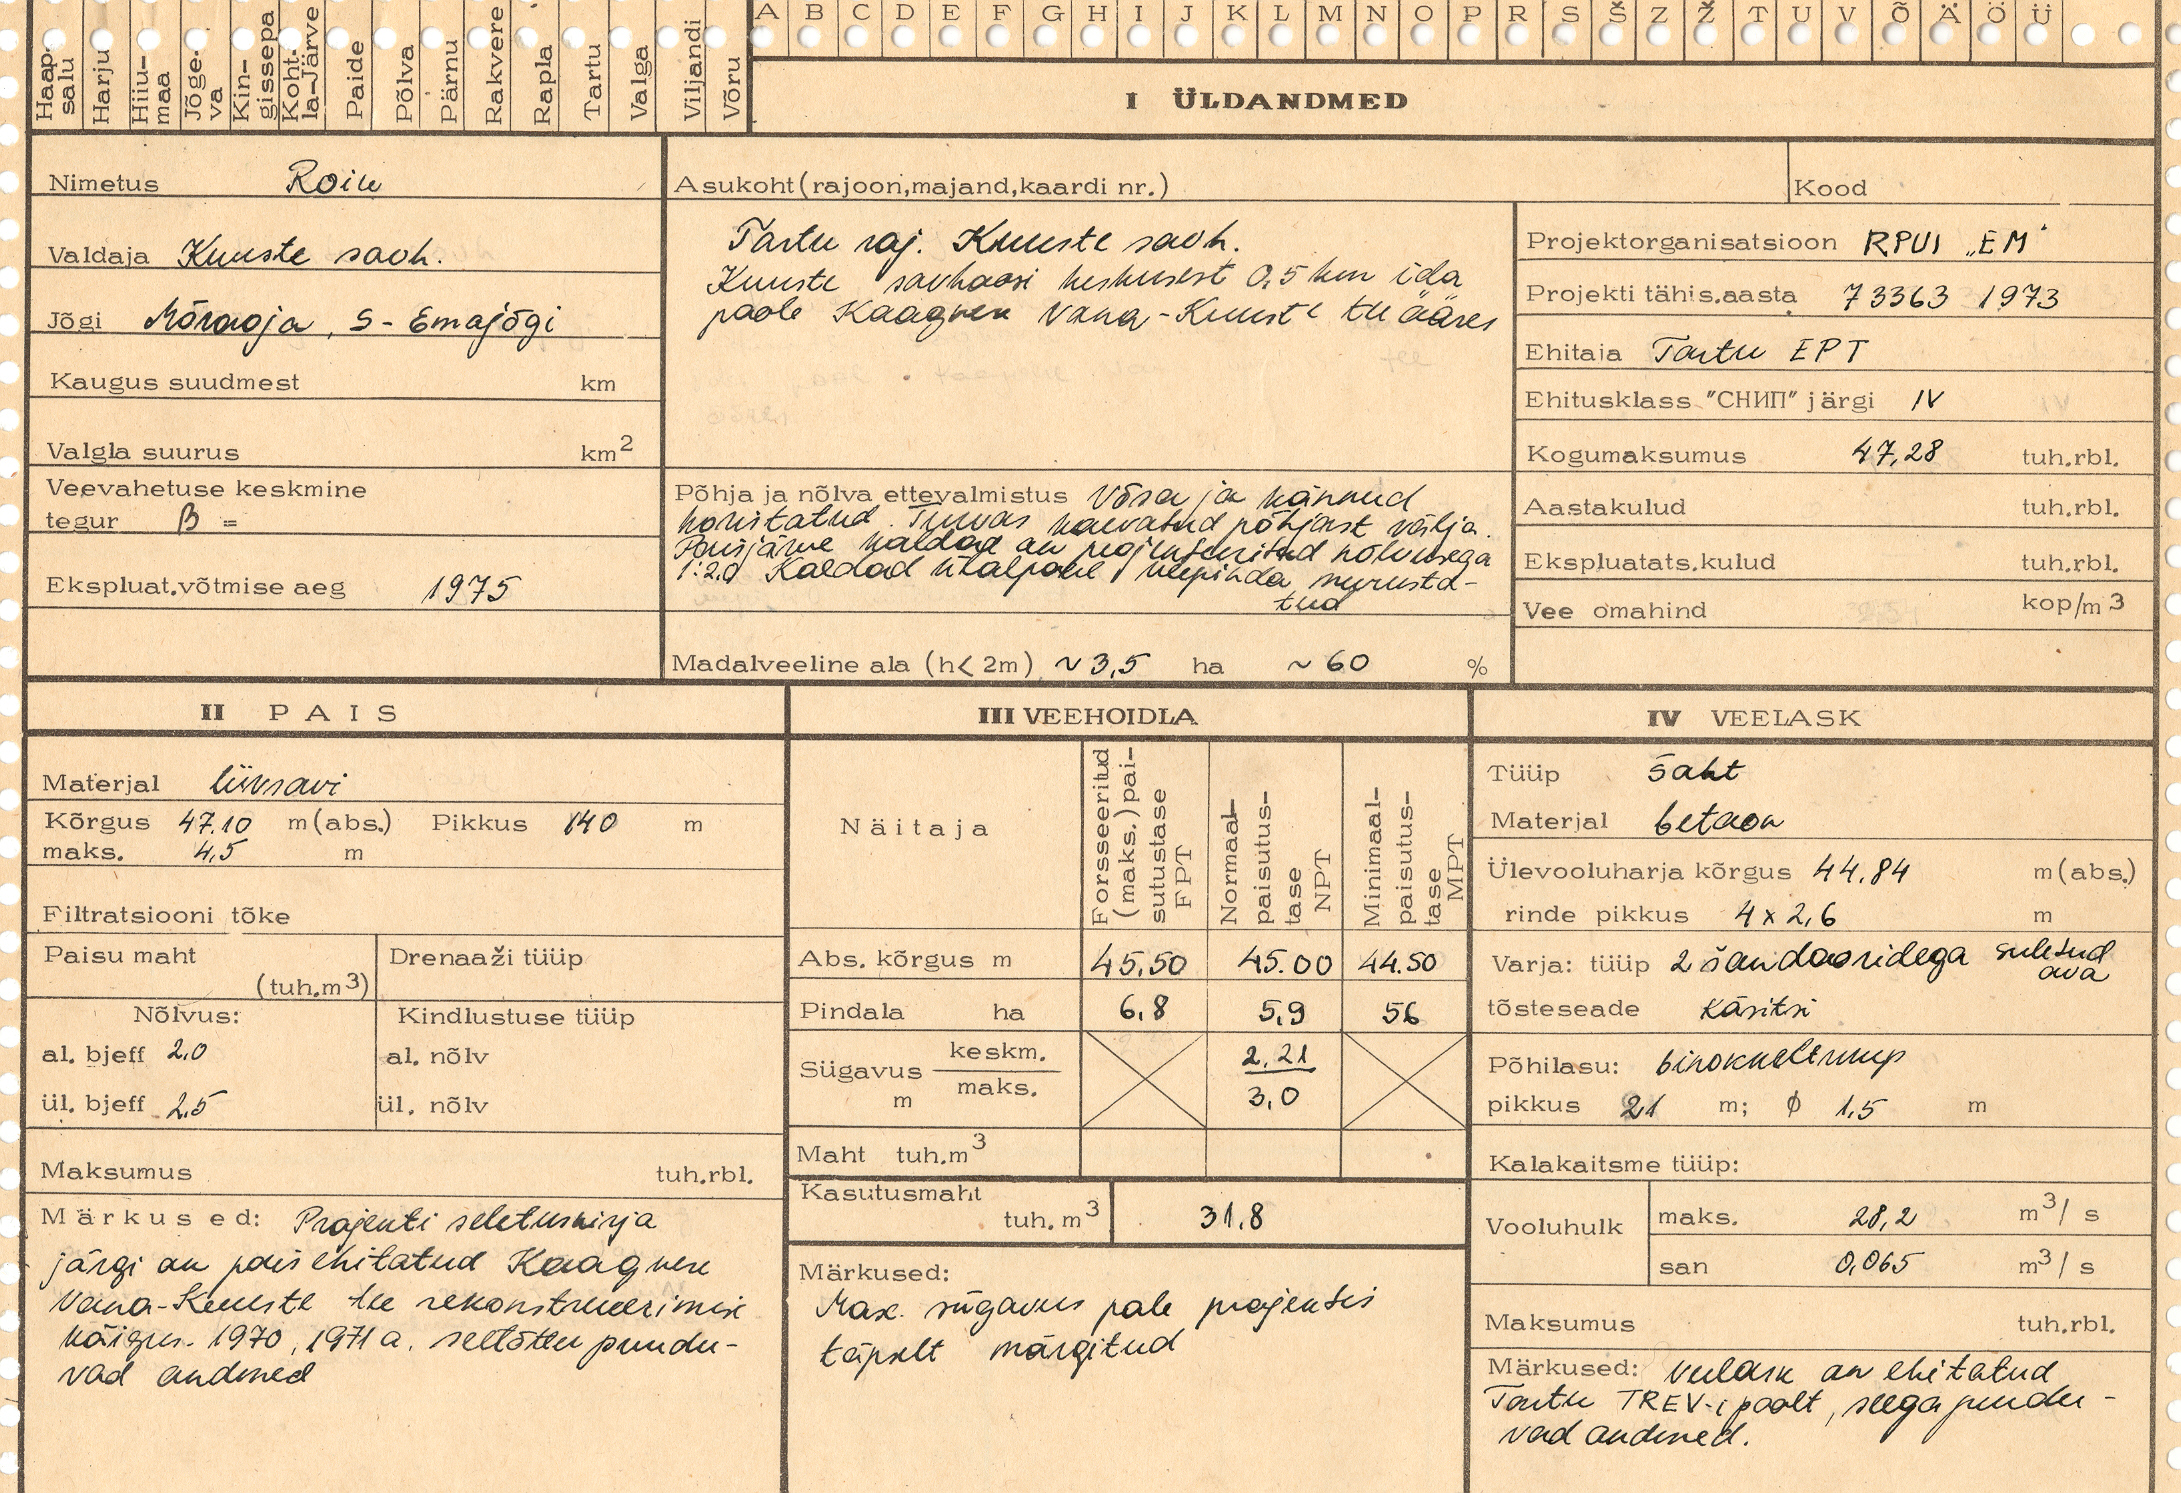 A B C D E F G H I J K L M N O P R S Š Z Ž T U V Õ Ä Ö Ü
Haap-salu Harju Hiiu-maa Jõge-va Kin-gissepa Koht-la-Järve Paide Põlva Pärnu Rakvere Rapla Tartu Valga Viljandi Võru
I ÜLDANDMED
Nimetus Roiu
Asukoht (rajoon, majand, kaardi nr.)
Kood
Valdaja Kuuste sovh.
Jõgi Mõraoja, S-Emajõgi
Kaugus suudmest km
Valgla suurus km2
Veevahetuse keskmine
tegur β =
Ekspluat. võtmise aeg 1975
Tartu raj. Kuuste sovh.
Kuuste sovhoosi keskusest 0,5 km ida
poole Kaagvere Vana-Kuuste tee ääres
Põhja ja nõlva ettevalmistus Võsa ja kännud
koristatud. Turvas kaevatud põhjast välja.
Paisjärve kaldad on projekteeritud nõlvusega
1:2.0 Kaldad ülalpool veepinda murusta-
tud
Madalveeline ala (h< 2m) ~3,5 ha ~60 %
Projektorganisatsioon RPUI „EM"
Projekti tähis. aasta 73363 1973
Ehitaja Tartu EPT
Ehitusklass "СНИП" järgi IV
Kogumaksumus 47,28 tuh.rbl.
Aastakulud tuh.rbl.
Ekspluatats.kulud tuh.rbl.
Vee omahind kop/m3
II PAIS
Materjal liivsavi
Kõrgus 47.10 m (abs.) Pikkus 140 m
maks. 4,5 m
Filtratsiooni tõke
Paisu maht Drenaaži tüüp
(tuh.m3)
Nõlvus: Kindlustuse tüüp
al. bjeff 2,0 al. nõlv
ül. bjeff 2,5 ül. nõlv
Maksumus tuh.rbl.
Märkused: Projekti seletuskirja
järgi on pais ehitatud Kaagvere
Vana-Kuuste tee rekonstrueerimise
käigus. 1970, 1971 a. seetõttu puudu-
vad andmed
III VEEHOIDLA
Näitaja
Forsseeritud (maks.) pai-sutustase FPT
Normaal-paisutus-tase NPT
Minimaal-paisutus-tase MPT
Abs. kõrgus m 45,50 45.00 44.50
Pindala ha 6,8 5,9 56
Sügavus m keskm. 2,21
maks. 3,0
Maht tuh.m3
Kasutusmaht
tuh. m3 31,8
Märkused:
Max. sügavus pole projektis
täpselt märgitud
IV VEELASK
Tüüp šaht
Materjal betoon
Ülevooluharja kõrgus 44,84 m (abs.)
rinde pikkus 4 x 2,6 m
Varja: tüüp 2 šandooridega suletud
ava
tõsteseade Käsitsi
Põhilasu: binokkeltruup
pikkus 21 m; ϕ 1,5 m
Kalakaitsme tüüp:
Vooluhulk maks. 28,2 m3/s
san 0,065 m3/s
Maksumus tuh.rbl.
Märkused: Veelask on ehitatud
Tartu TREV-i poolt, seega puudu-
vad andmed.